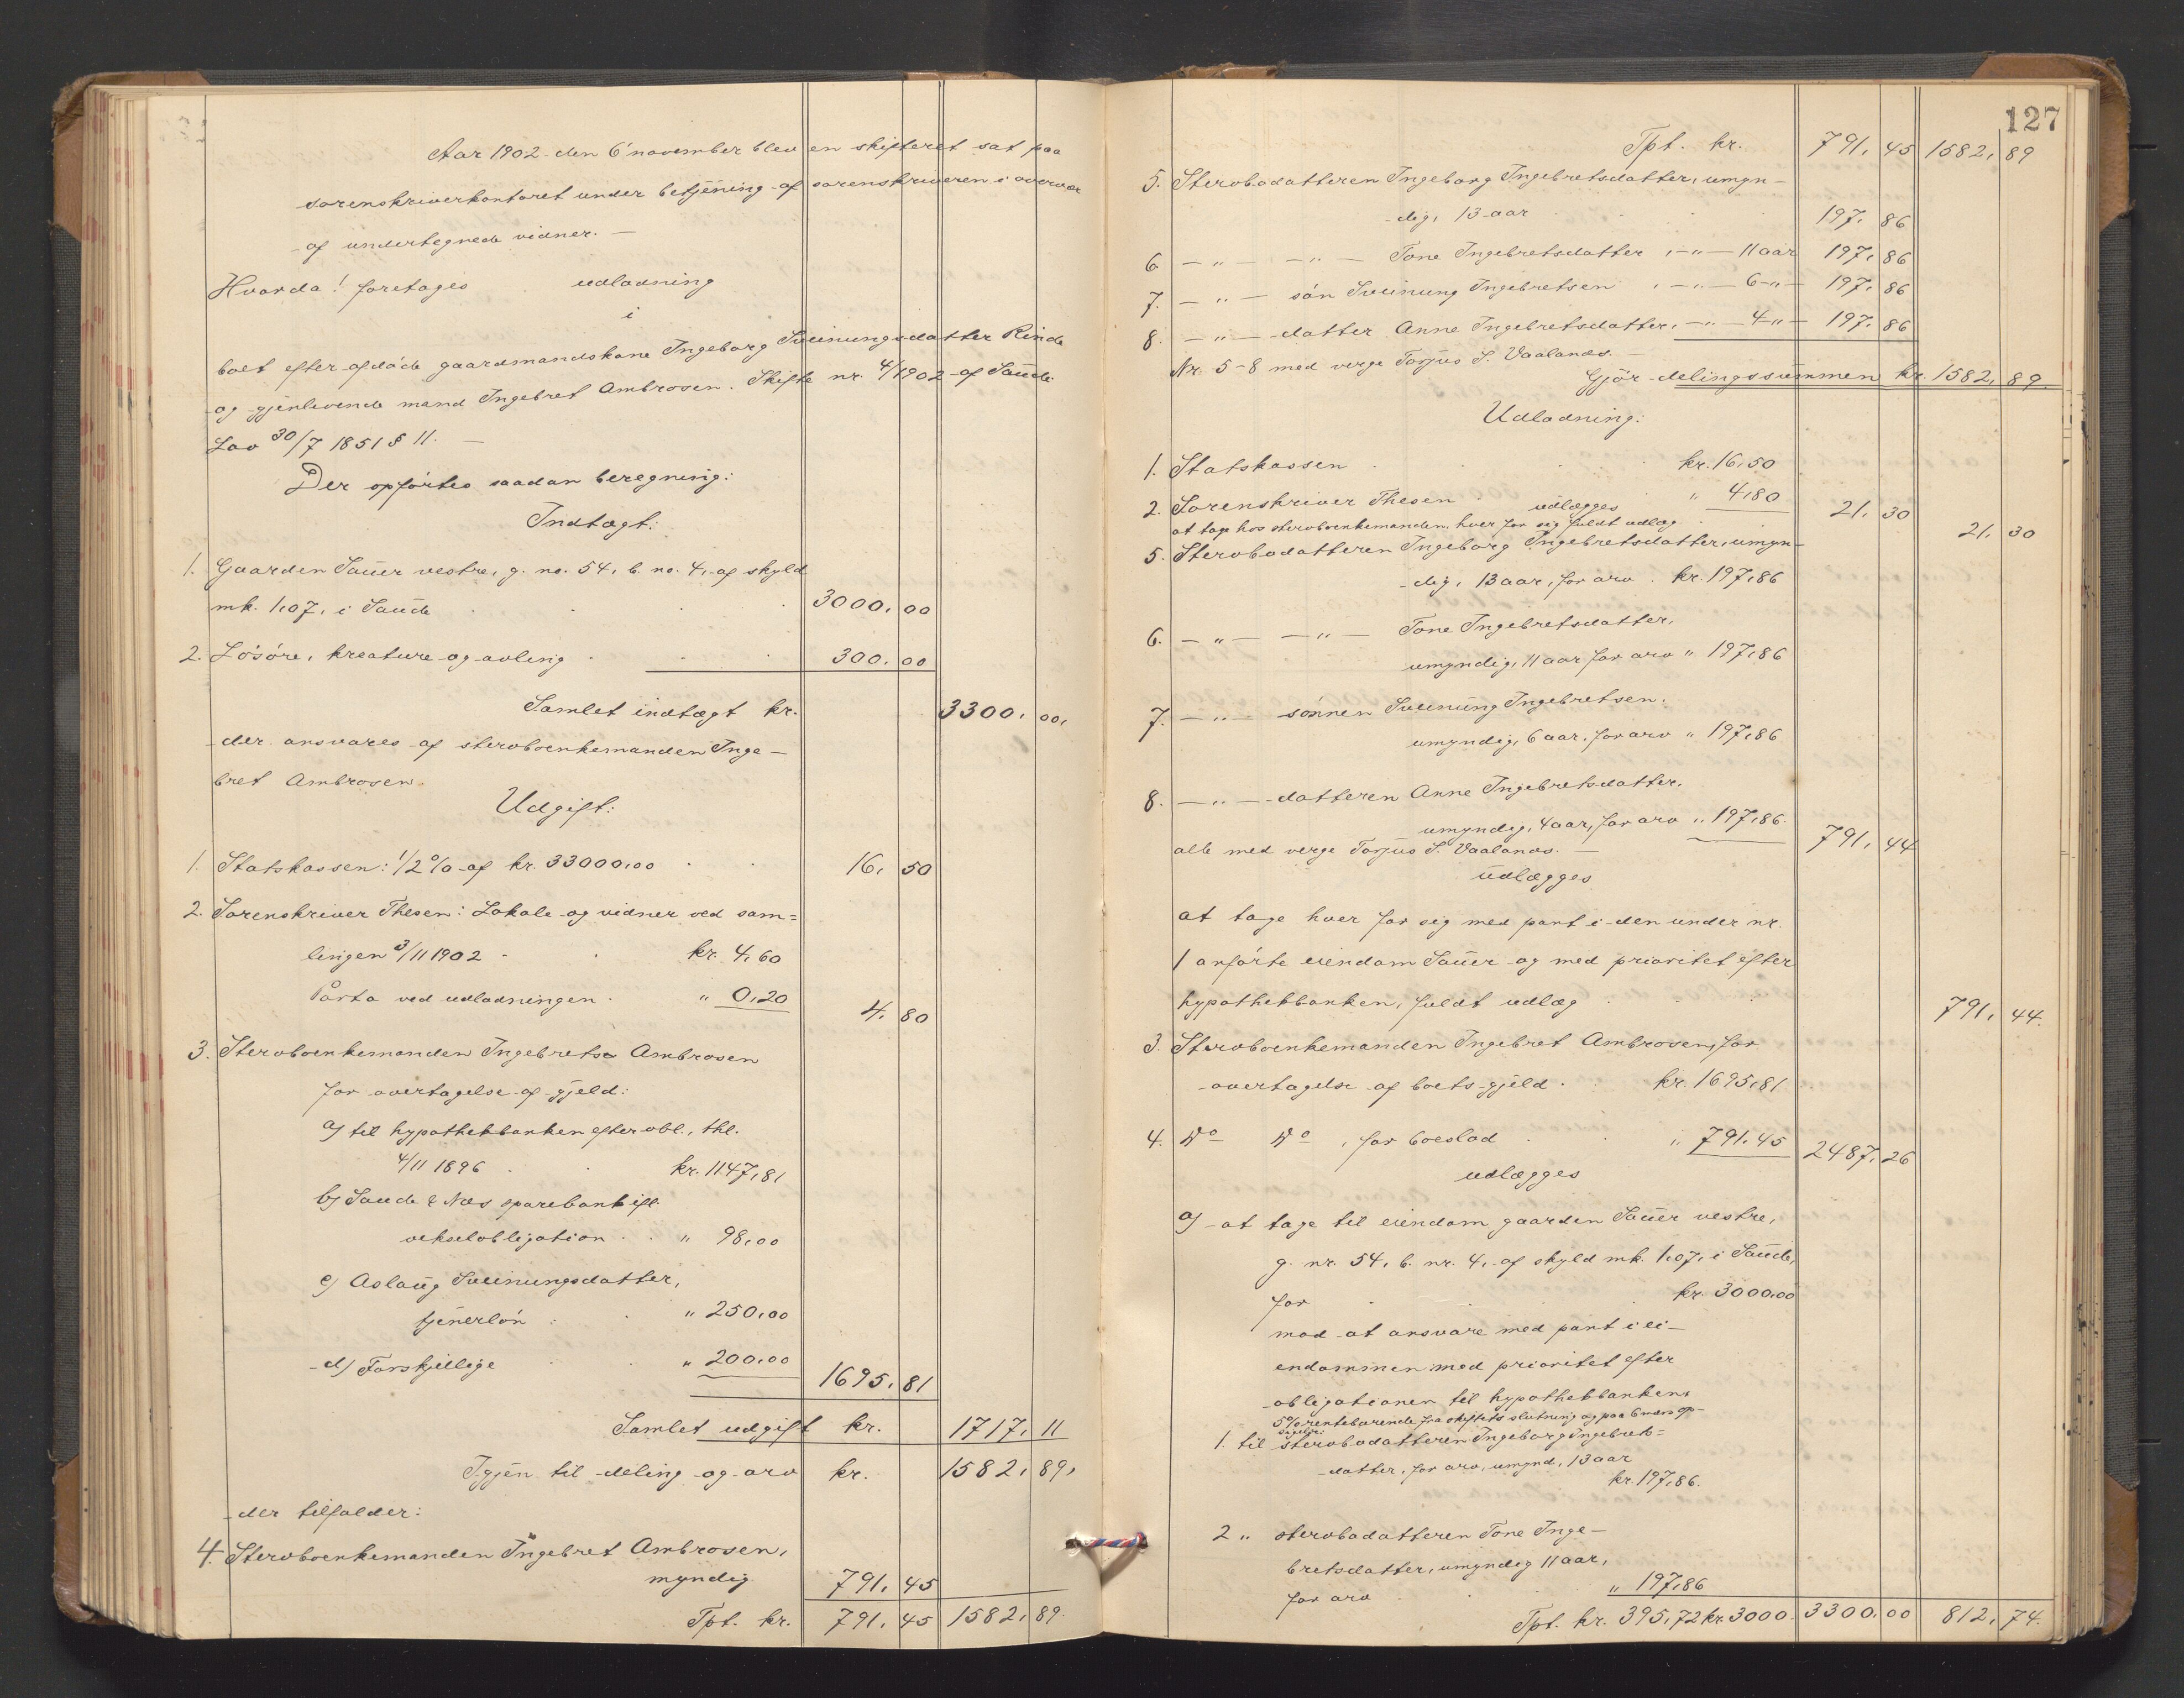 Aar 1902 den 6 november blev en skifteret sat paa
sorenskriverkontoret under betjening af sorenskriveren i overvær
af undertegnede vidner. —
Hvorda! foretages udlodning
i
boet efter afdøde gaardmandskone Ingeborg Sveinungsdatter Rinde
og gjenlevende mand Ingebret Ambrosen. Skifte nr. 4/1902 af Saude.
Lov 30/7 1851 § 11. —
Der opførtes saadan beregning:
Indtægt:
1. Gaarden Sauer vestre, g. no. 54, b. no. 4, af skyld
mk. 1,07, i Saude 3000, 00
2. Løsøre, kreature og avling 300, 00
Samlet indtægt kr. 3300, 00,
der ansvares af stervboenkemanden Inge-
bret Ambrosen.
Udgift:
1. Statskassen: 1/2 % af kr. 33000,00 16, 50
2. Sorenskriver Thesen: Lokale og vidner ved sam=
lingen 3/11 1902 kr. 4,60
Porto ved udlodningen " 0,20 4, 80
3. Stervboenkemanden Ingebret Ambrosen
for overtagelse af gjeld:
a) til hypothekbanken efter obl., thl.
4/11 1896 kr. 1147,81
b) Saude & Nes sparebank ifl.
vekselobligation " 98,00
c) Aslaug Sveinungsdatter,
tjenerløn " 250,00
d) Forskjellige " 200,00 1695, 81
Samlet udgift kr. 1717, 11
Igjen til deling og arv kr. 1582, 89,
der tilfalder:
4. Stervboenkemanden Ingebret Ambrosen,
myndig 791, 45
Tpt. kr. 791, 45 1582, 89.
127
Tpt. kr. 791, 45 1582, 89
5. Stervbodatteren Ingeborg Ingebretsdatter, umyn-
dig, 13 aar 197, 86
6 — " — — " — Tone Ingebretsdatter, — " — 11 aar 197, 86
7. — " — søn Sveinung Ingebretsen, — " — 6 — " — 197, 86
8. — " — datter Anne Ingebretsdatter, — " — 4 " — 197, 86
Nr. 5-8 med verge Torjus S. Vaalands. —
Gjør delingssummen kr. 1582, 89.
Udlodning:
1. Statskassen kr. 16,50
2. Sorenskriver Thesen " 4,80 21, 30
udlægges
at tage hos stervboenkemanden, hver for sig fuldt udlæg 21, 30
5. Stervbodatteren Ingeborg Ingebretsdatter, umyn-
dig, 13 aar, for arv kr. 197,86
6. — " — — " — Tone Ingebretsdatter,
umyndig, 11 aar for arv " 197,86
7. — " — sønnen Sveinung Ingebretsen,
umyndig, 6 aar, for arv " 197,86
8. — " — datteren Anne Ingebretsdatter,
umyndig, 4 aar, for arv " 197,86.
alle med verge Torjus S. Vaalands. — 791, 44
udlægges
at tage hver for sig med pant i den under nr.
1 anførte eiendom Sauer og med prioritet efter
hypothekbanken, fuldt udlæg 791, 44.
3. Stervboenkemanden Ingebret Ambrosen, for
overtagelse af boets gjeld kr. 1695,81
4. Do Do, for boeslod " 791,45 2487, 26
udlægges
a) at tage til eiendom gaarden Sauer vestre,
g. nr. 54, b. nr. 4, af skyld mk. 1,07, i Saude,
for kr. 3000,00
mod at ansvare med pant i ei-
endommen med prioritet efter
obligationen til hypothekbanken,
5% rentebærende fra skiftets slutning og paa 6 mdrs op-
sigelse:
1. til stervbodatteren Ingeborg Ingebrets=
datter, for arv, umynd, 13 aar
kr. 197,86.
2 " stervbodatteren Tone Inge-
bretsdatter, umyndig 11 aar,
for arv " 197,86
Tpt. kr. 395,72 kr. 3000. 3300,00 812, 74.